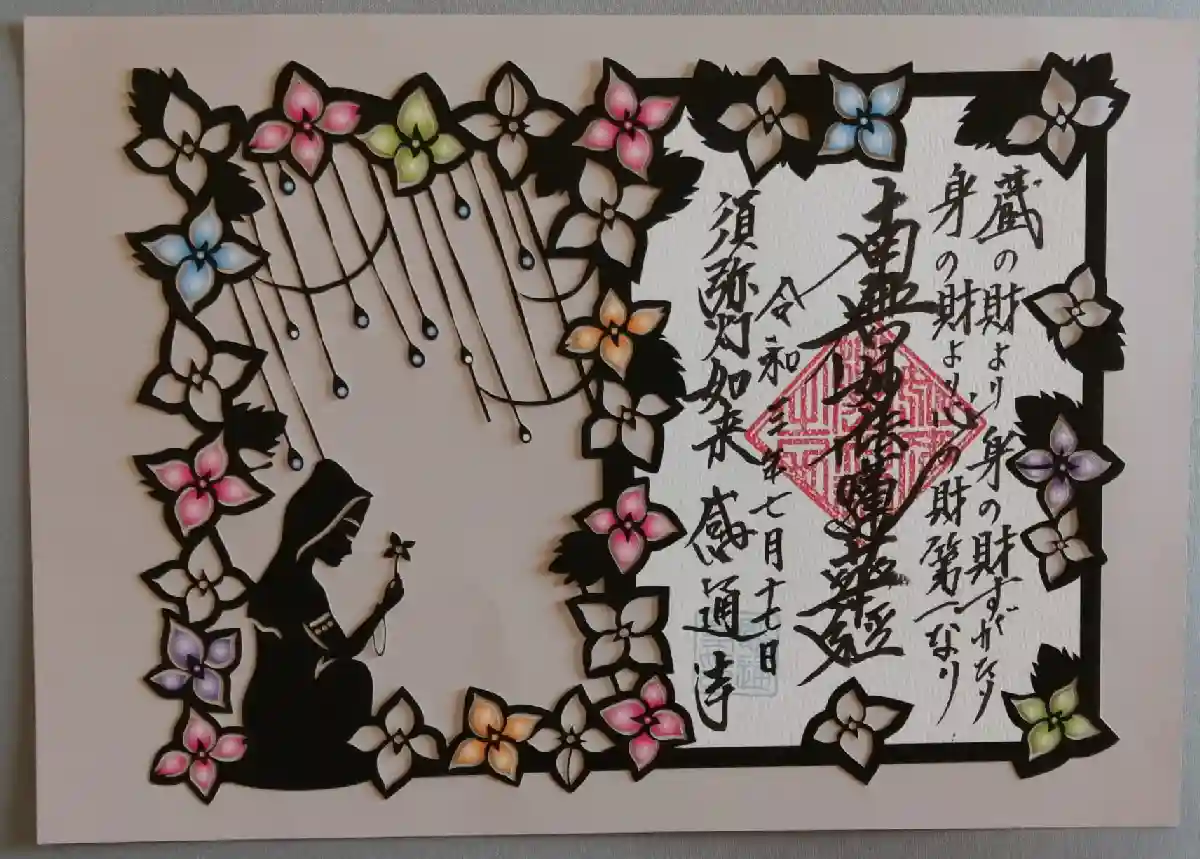 蔵の財より身の財すぐれたり
身の財より心の財第一なり
南無妙法蓮華経
令和三年七月十七日
須弥灯如来 感通寺